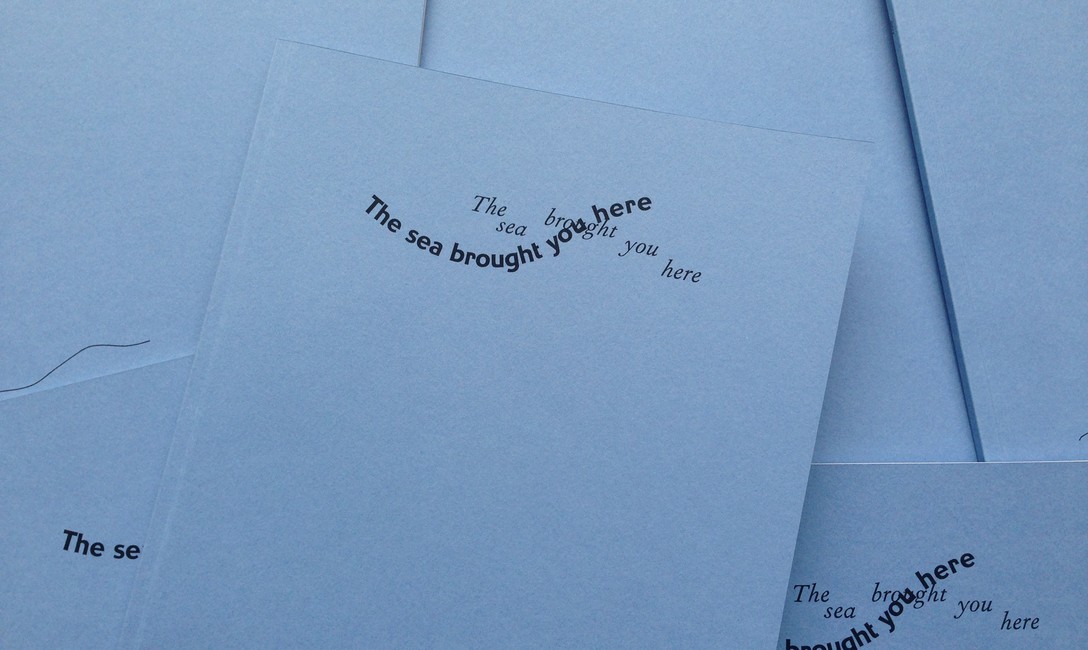 The sea brought you here
The sea brought you here
The se
The sea brought you here
brought you here